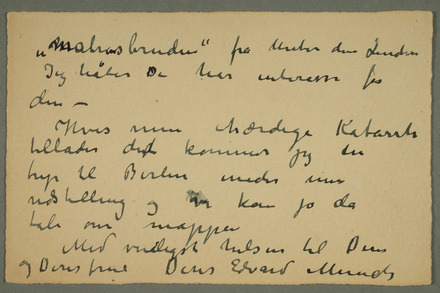 „Matrosbruden" fra Unter den Linden
Jeg håber De har interesse for
den —
Hvis min Katarrh
tillader det kommer jeg en
tur til Berlin under min
udstilling og vi kan jo da
tale om mappen
Med venligst hilsen til Dem
og Deres frue Deres Edvard Munch